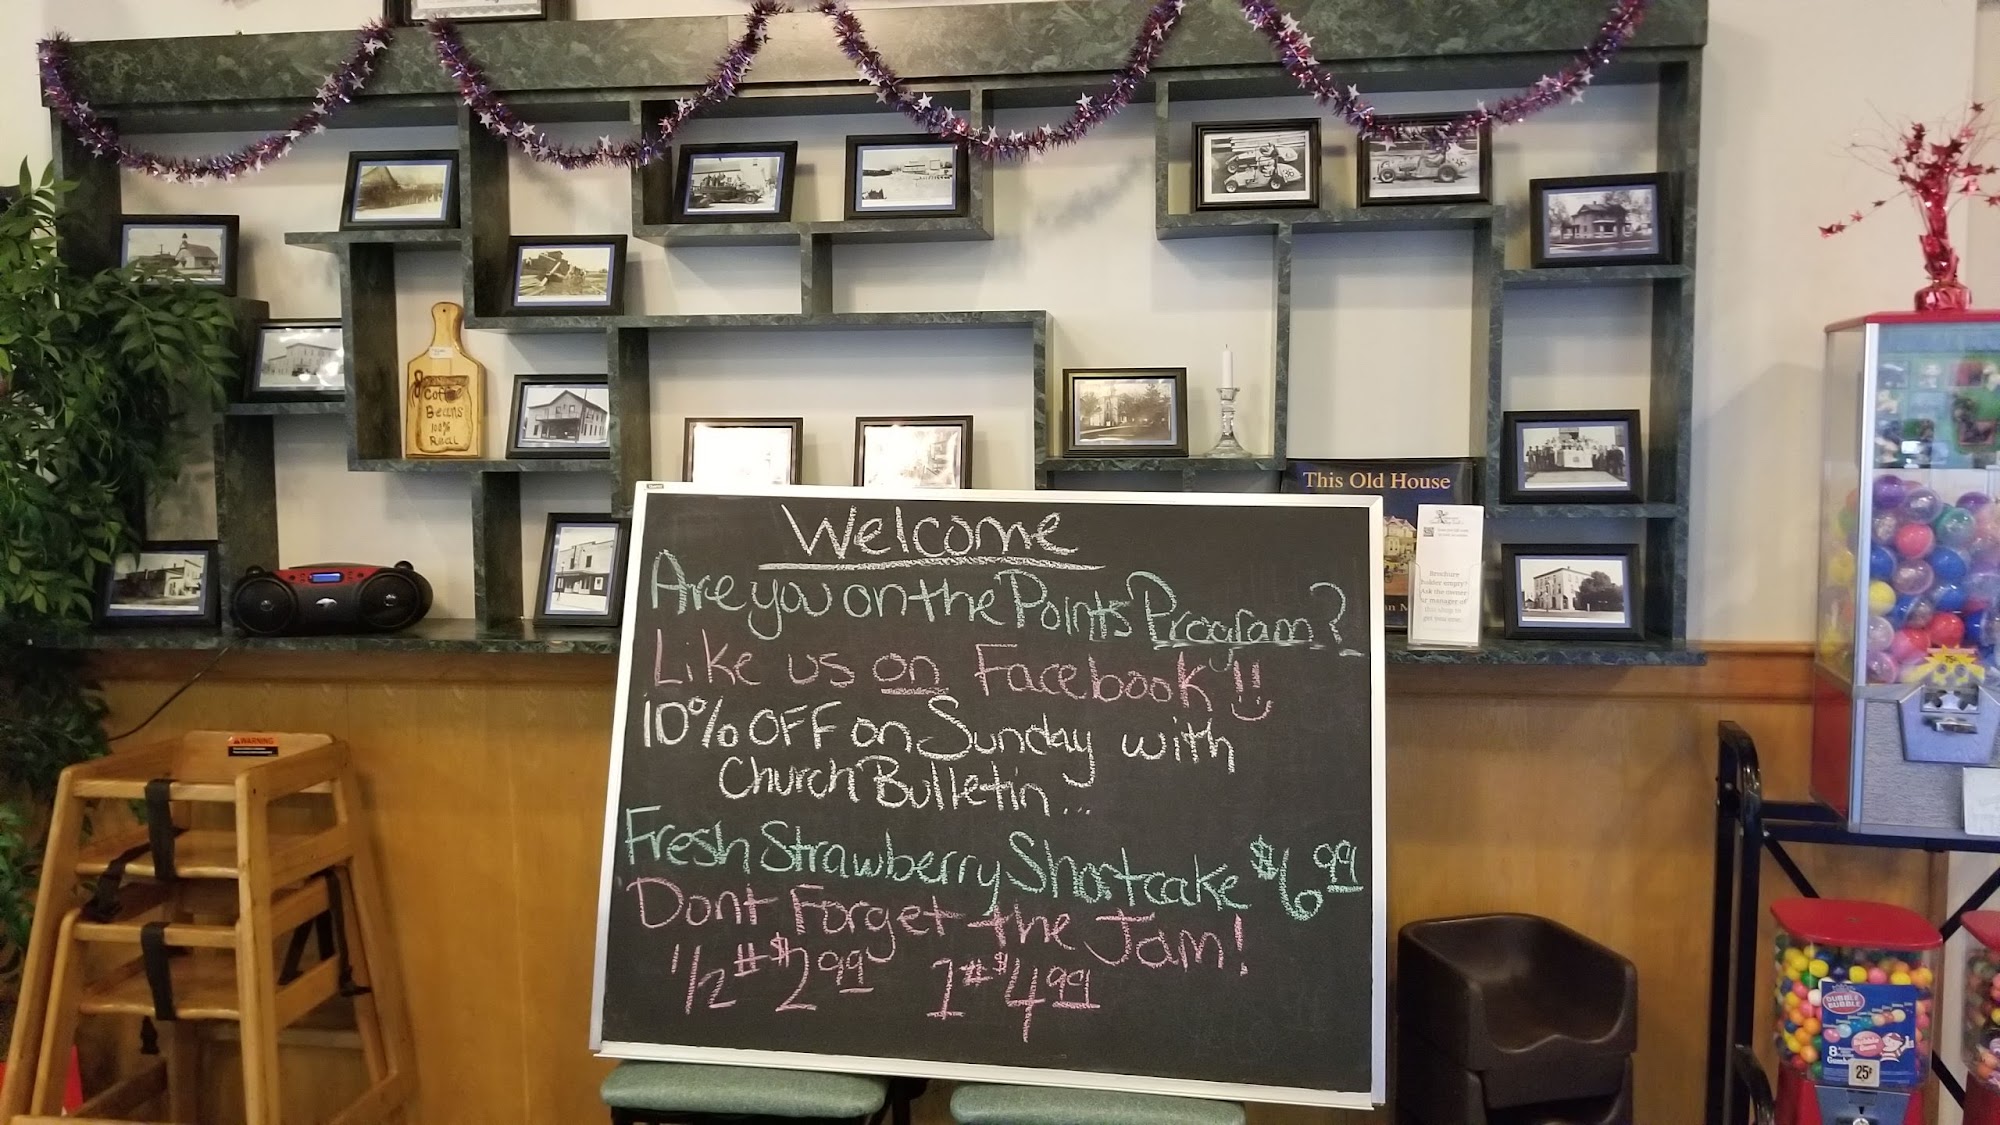 Coffee
Beans
100%
Real
This Old House
Welcome
Are you on the Points Program?
Like us on Facebook!!
10% OFF on Sunday with
Church Bulletin...
Fresh Strawberry Shortcake $6.99
Dont Forget the Jam!
1/2 # $2.99 1 # $4.99
Brochure
holder empty?
Ask the owner
or manager of
this shop to
get you one.
WARNING
DUBBLE
BUBBLE
25¢